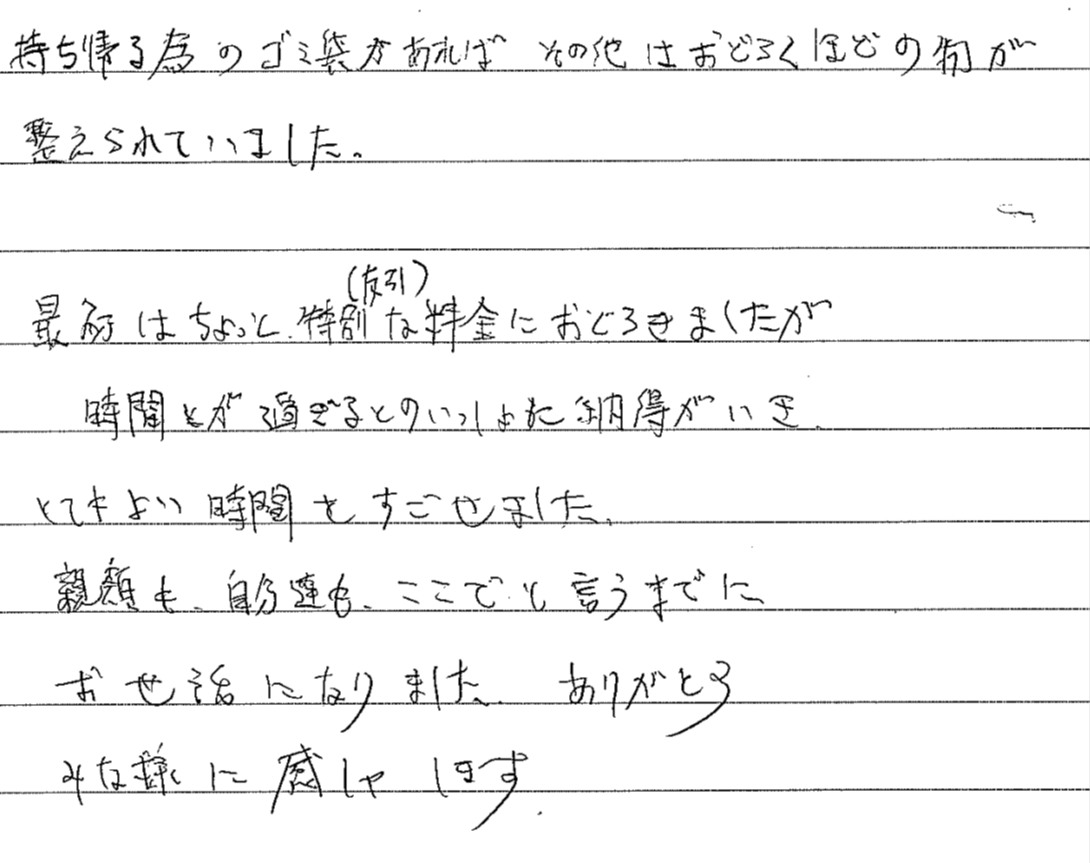 持ち帰る為のゴミ袋があれば その他はおどろくほどの物が
整えられていました。
(友引)
最初はちょっと、特別な料金におどろきましたが
時間とが過ぎるとのいっしょに納得がいき、
とてもよい時間をすごせました。
親類も、自分達も、ここでと言うまでに
お世話になりました。ありがとう
みな様に感しゃします。